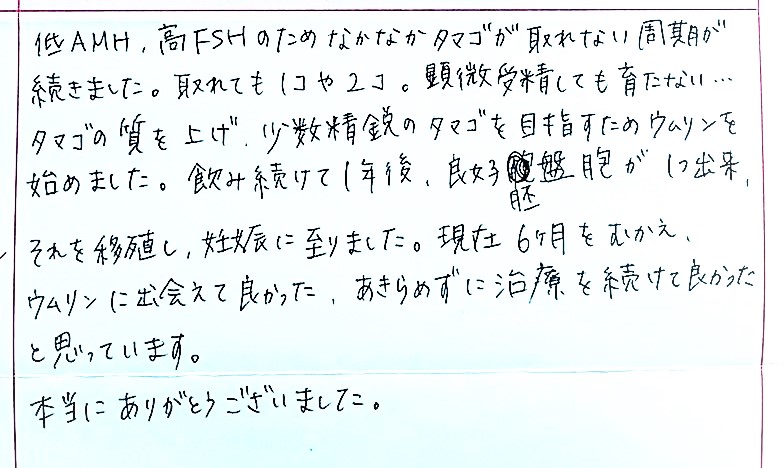 低AMH、高FSHのためなかなかタマゴが取れない周期が
続きました。取れても1コや2コ。顕微受精しても育たない…
タマゴの質を上げ、少数精鋭のタマゴを目指すためウムリンを
始めました。飲み続けて1年後、良好胚盤胞が1つ出来、
それを移殖し、妊娠に至りました。現在6ケ月をむかえ、
ウムリンに出会えて良かった、あきらめずに治療を続けて良かった
と思っています。
本当にありがとうございました。